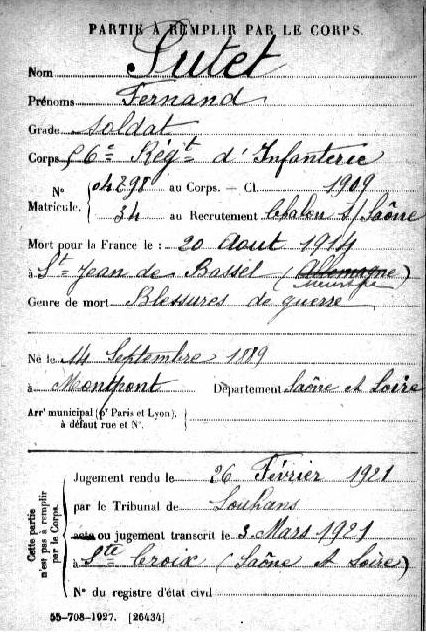 PARTIE À REMPLIR PAR LE CORPS.
Nom Putet
Prénoms Fernand
Grade soldat
Corps 56e Régt d'Infanterie
N° Matricule. 04298 au Corps. — Cl. 1909
34 au Recrutement Chalon s/Saône
Mort pour la France le : 20 Août 1914
à St Jean de Bassel (Allemagne)
meurthe
Genre de mort Blessures de guerre
Né le 14 Septembre 1889
à Montpont Département Saône et Loire
Arrt municipal (pr Paris et Lyon),
à défaut rue et N°.
Cette partie n'est pas à remplir par le Corps.
Jugement rendu le 26 Février 1921
par le Tribunal de Louhans
acte ou jugement transcrit le 3 Mars 1921
à Ste Croix (Saône et Loire)
N° du registre d'état civil
55-708-1927. [26434]